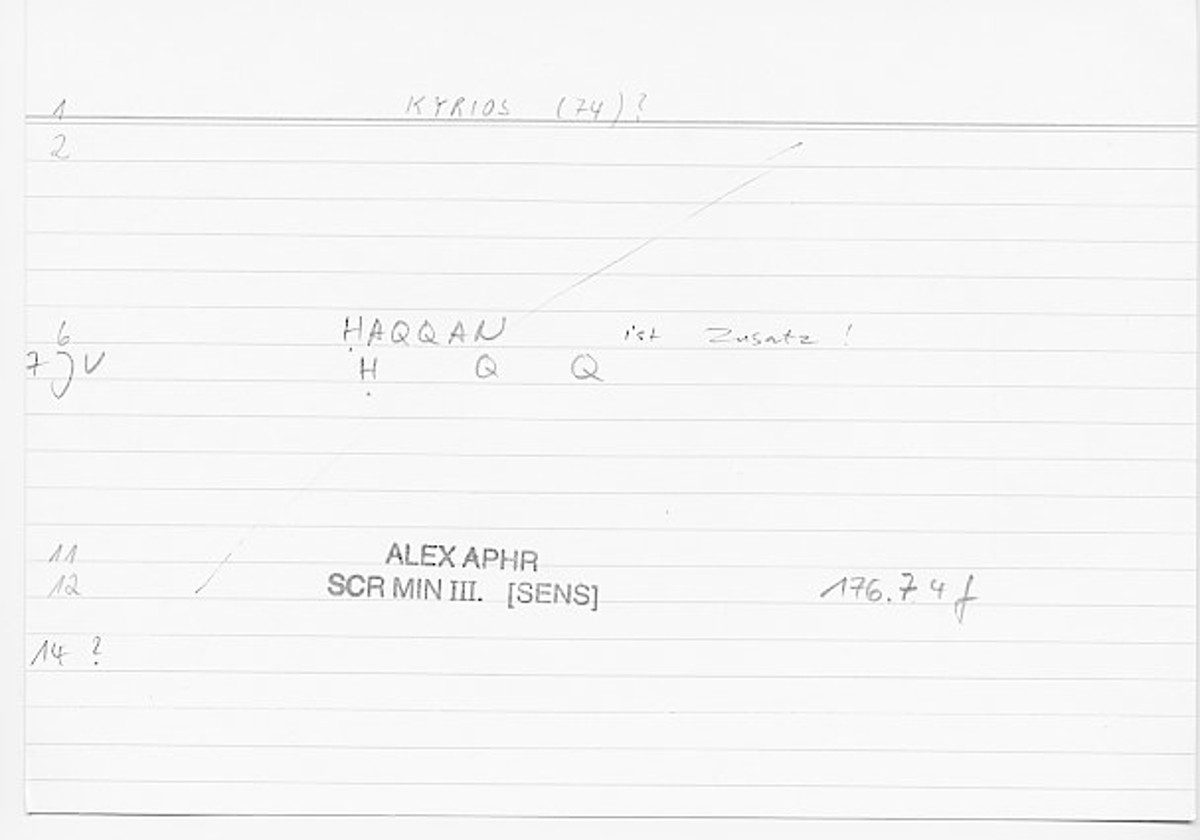 1 KYRIOS (74)?
2
6 ḤAQQAN ist Zusatz!
7 V Ḥ Q Q
11 ALEX APHR
12 SCR MIN III. [SENS] 176.7 4 f
14 ?